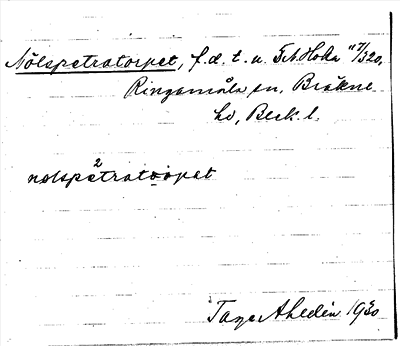 Nölspetratorpet, f.d. t. u. St. Hoka 117/320,
Ringamåla sn, Bräkne
hd, Blek. l.
2
nølspetratorpet
Tage Ahldén 1930